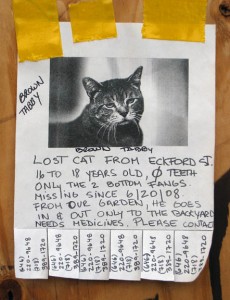 BROWN
TABBY
BROWN TABBY
LOST CAT FROM ECKFORD ST.
16 TO 18 YEARS OLD, Ø TEETH
ONLY THE 2 BOTTOM FANGS.
MISSING SINCE 6/20/08.
FROM OUR GARDEN, HE GOES
IN & OUT ONLY TO THE BACKYARD
NEEDS MEDICINES. PLEASE CONTAC